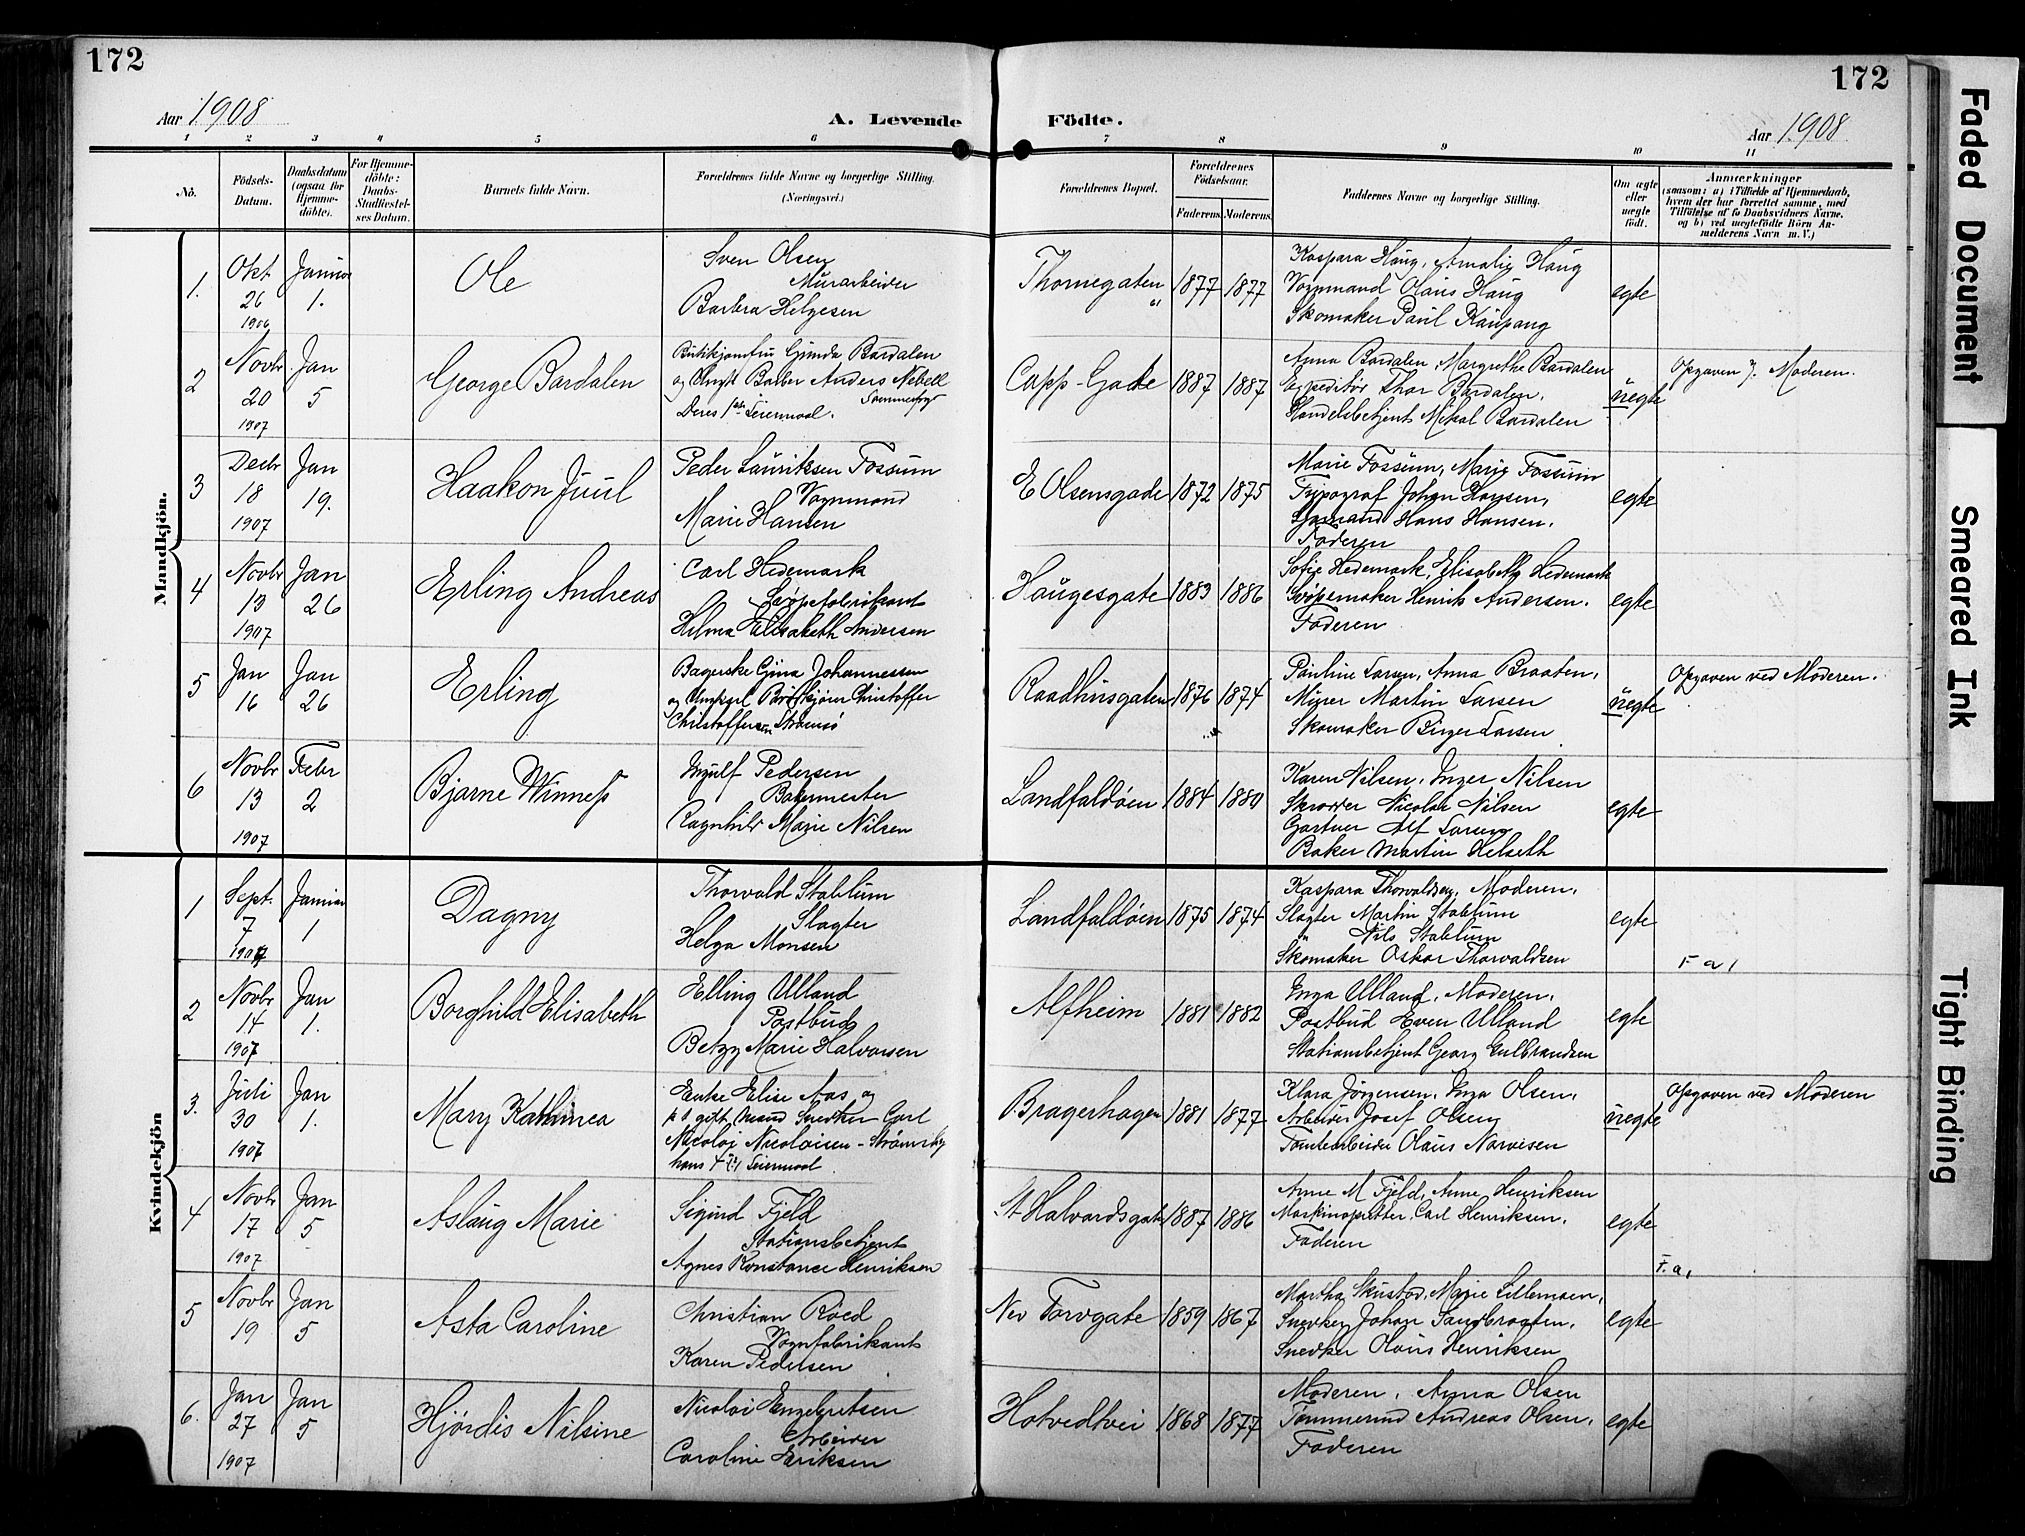 172
172
Aar 1908
A. Levende
Födte.
Aar 1908
1 2 3 4 5 6 7 8 9 10 11
No.
Födsels-
Datum.
Daabsdatum
(ogsaa for
Hjemme-
döbte).
For Hjemme-
döbte:
Daabs-
Stadfæstel-
ses Datum.
Barnets fulde Navn.
Forældrenes fulde Navne og borgerlige Stilling.
(Næringsvei.)
Forældrenes Bopæl.
Forældrenes
Födselsaar.
Faderens. Moderens.
Faddernes Navne og borgerlige Stilling.
Om ægte
eller
uægte
födt.
Anmærkninger
(saasom: a) i Tilfælde af Hjemmedaab,
hvem der har forrettet samme, med
Tilföielse af to Daabsvidners Navne.
og b) ved uægtefödte Börn An-
melderens Navn m. V.)
Mandkjön.
1.
Okt
26
1906
Januar
1.
Ole
Sven Olsen
Murarbeider
Barbra Helgesen
Thornegaten
1877
1877
Kaspara Haug, Amalie Haug
Vognmand Olaus Haug
Skomaker Paul Kaupang
egte
2
Novbr
20
1907
Jan
5
George Bardalen
Butikjomfru Gunda Bardalen
og Ungkl Barber Anders Nebell
Deres 1ste Leiermaal.
Capp-Gade
1887
1887
Anna Bardalen, Margrethe Bardalen
Expeditör Thor Bardalen.
Handelsbetjent Mikal Bardalen
uegte
Opgaven v. Moderen.
3
Decbr
18
1907
Jan
19.
Haakon Juul
Peder Lauriksen Fossum
Vognmand
Marie Hansen
E Olsensgade
1872
1875
Marie Fossum, Marie Fossum
Typograf Johan Hansen,
Sjømand Hans Hansen.
Faderen
egte
4
Novbr
13
1907
Jan
26
Erling Andreas
Carl Hedemark
Svöpefabrikant
Hilma Elisabeth Andersen
Haugesgate
1883
1886
Sofie Hedemark, Elisabeth Hedemark
Svöpemaker Henrik Andersen.
Faderen
egte
5
Jan
16
Jan
26
Erling
Bagerske Gina Johannessen
og Christoffer
Christoffersen Strömsö
Raadhusgaten
1876
1874
Pauline Larsen, Anna Braaten,
Murer Martin Larsen
Skomaker Birger Larsen
uegte
Opgaven ved Moderen.
6
Novbr
13
1907
Febr
2
Bjarne Winness
Ingulf Pedersen
Bakermester
Ragnhild Marie Nilsen
Landfaldöen
1884
1880
Karen Nilsen, Inger Nilsen
Skrædder Nicolai Nilsen
Gartner Alf Larsen
Baker Martin Helseth
egte
Kvindekjön
1
Sept.
7
1907
Januar
1
Dagny
Thorvald Stablum
Slagter
Helga Monsen
Landfaldöen
1875
1874
Kaspara Thorvaldsen, Moderen.
Slagter Martin Stablum
Nils Stablum
Skomaker Oskar Thorvaldsen
egte
F. a.
2
Novbr
14
1907
Jan
1.
Borghild Elisabeth
Elling Ulland
Postbud
Betzy Marie Halvorsen
Alfheim
1881
1882
Inga Ulland, Moderen,
Postbud Even Ulland
Stationsbetjent Georg Gulbrandsen
egte
3.
Juli
30
1907
Jan
1.
Mary Kathinea
Enke Elise Aas og
gift Mand Snedker Carl
Nicolai Nicolaisen - Strömsby
hans 4de Leiermaal
Bragerhagen
1881
1877
Klara Jörgensen, Inga Olsen,
Arbeider Josef Olsen
Tomtearbeider Olaus Narvesen
uegte
Opgaven ved Moderen
4
Novbr
17
1907
Jan
5
Aslaug Marie
Sigurd Fjeld
Stationsbetjent
Agnes Konstance Henriksen
St Halvardsgate
1887
1886
Anne M Fjeld, Anne Henriksen
Maskinopsetter Carl Henriksen,
Faderen
egte
F. a.
5
Novbr
19
Jan
5
Asta Caroline
Christian Röed
Vognfabrikant
Karen Pedersen
Nev Torvgate
1859
1867
Martha Skustad, Marie Lillemoen,
Snedker Johan Sandbraaten,
Snedker Olaus Henriksen
egte
6.
Jan
27
1907
Jan
5
Hjördis Nilsine
Nicolai Engebretsen
Arbeider
Caroline Eriksen
Hotvedtvei
1868
1877
Moderen, Anna Olsen
Tömmermd Andreas Olsen,
Faderen
egte
Faded Document
Smeared Ink
Tight Binding